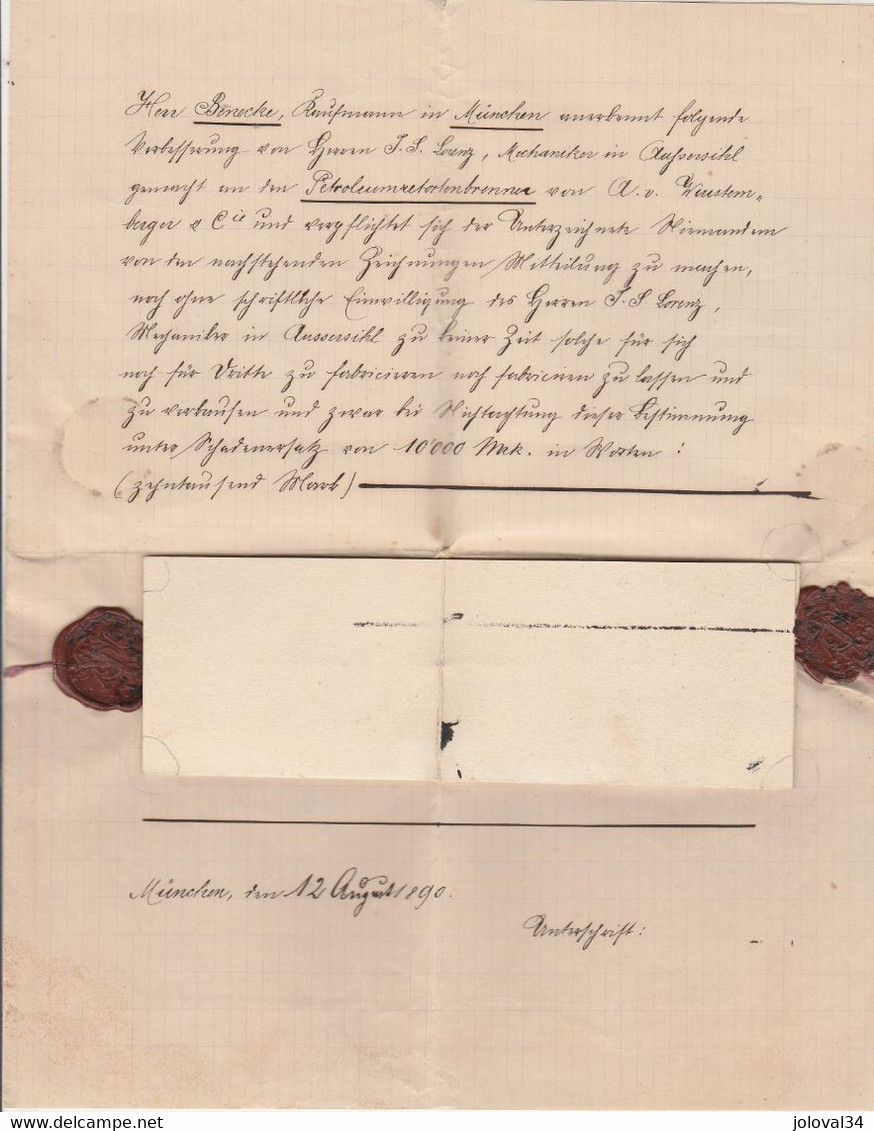 Herr Benecke, Kaufmann in München anerkennt folgende
Verbesserung von Herren J. S. Lorenz, Mechaniker in Aussersihl
gemacht an den Petroleumretortenbrenner von A. v. Wurstem„
berger & Cie und verpflichtet sich der Unterzeichnete Niemandem
von den nachstehenden Zeichnungen Mitteilung zu machen,
noch ohne schriftliche Einwilligung des Herren J. S. Lorenz,
Mechaniker in Aussersihl zu keiner Zeit solche für sich
noch für Dritte zu fabricieren noch fabriciren zu lassen und
zu verkaufen und zwar bei Nichtachtung dieser Bestimmung
unter Schadenersatz von 10'000 Mrk. in Worten :
(zehntausend Mark)
München, den 12 August 1890.
Unterschrift:
delcampe.net
joloval34